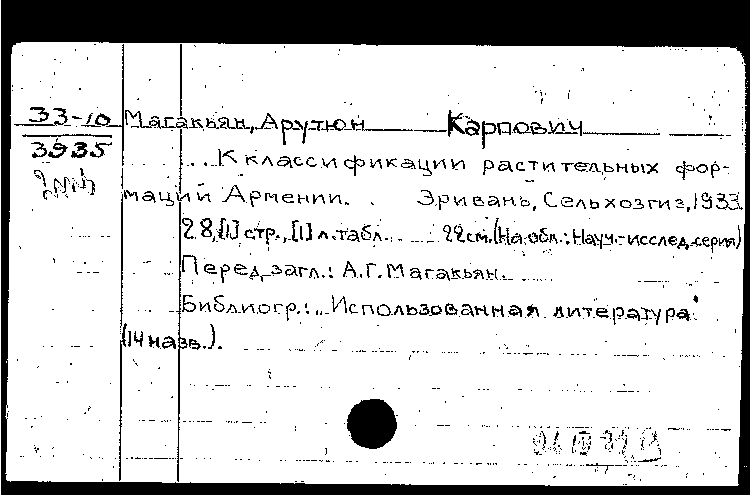 33-10 Магакьян, Арутюн Карпович
3935 К классификации растительных фор-
маций Армении. Эривань, Сельхозгиз, 1933.
28,[1] стр., [1] л. табл. 22см. (На обл.: Науч.-исслед. серия)
Перед загл.: А.Г. Магакьян.
Библиогр.: „Использованная литература"
(14 назв.).